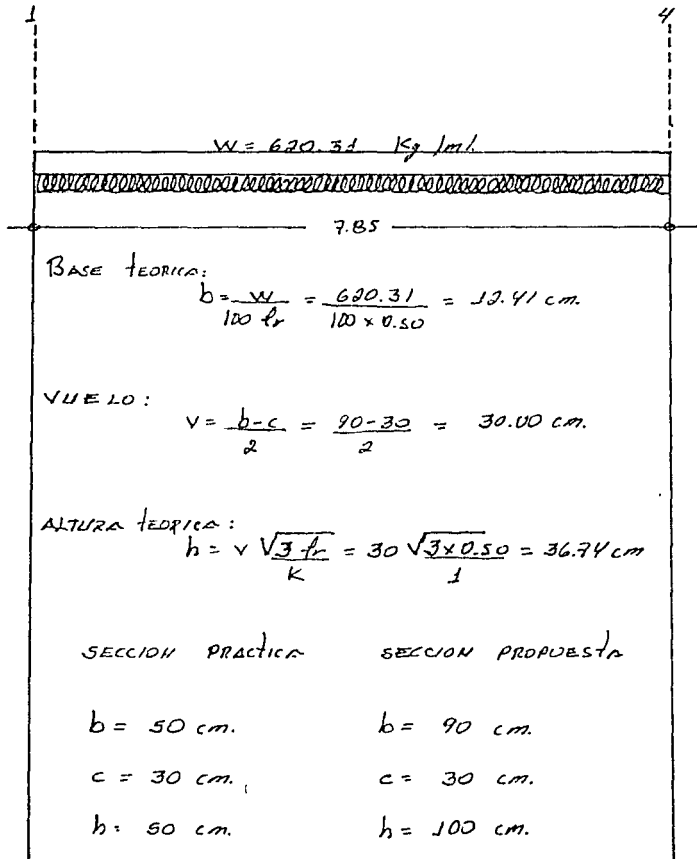 1 4
W = 620.31 Kg/ml.
7.85
BASE tEORICA:
b = w/100 fr = 620.31/100 x 0.50 = 12.41 cm.
VUELO:
v = b-c/2 = 90-30/2 = 30.00 cm.
ALTURA tEORICA:
h = v √3 fr/K = 30 √3x0.50/1 = 36.74 cm
SECCION PRACTICA SECCION PROPUESTA
b = 50 cm. b = 90 cm.
c = 30 cm. c = 30 cm.
h: 50 cm. h = 100 cm.